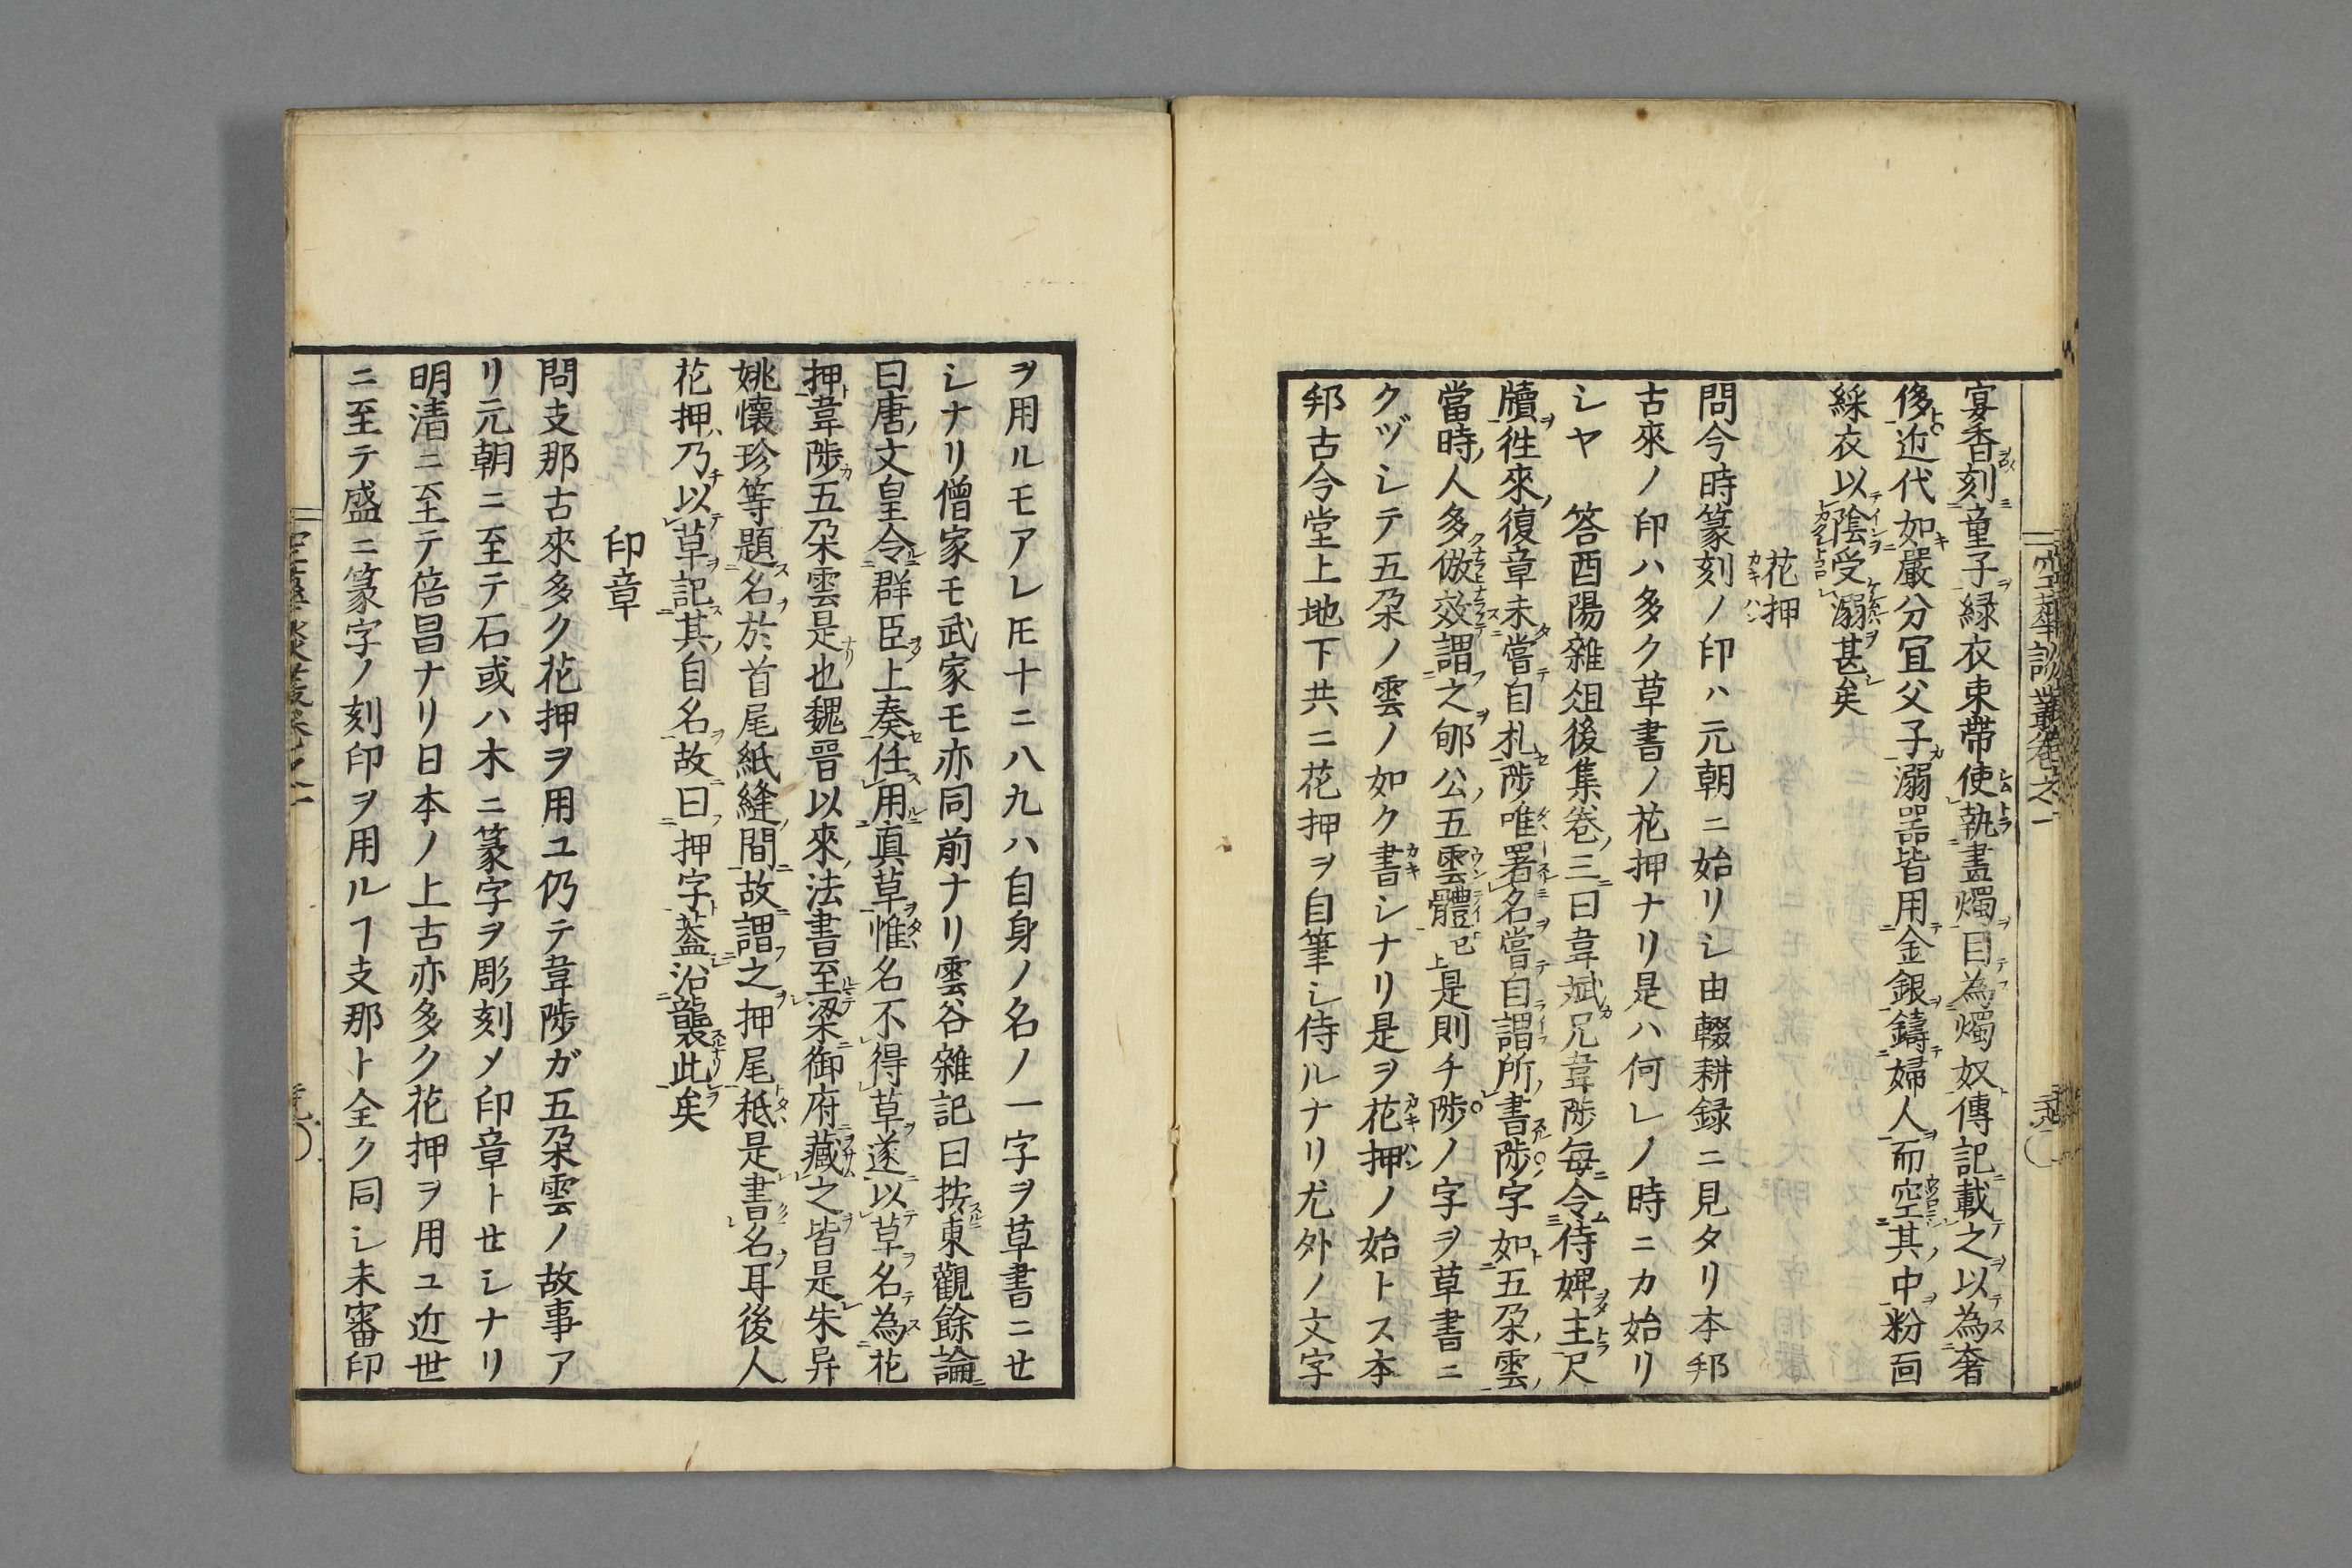 宴香刻童子緑衣束帶使執畫燭目為燭奴傳記載之以為奢
侈近代如嚴分宜父子溺器皆用金銀鑄婦人而空其中粉面
綵衣以陰受溺甚矣
花押
問今時篆刻ノ印ハ元朝ニ始リシ由輟耕録ニ見タリ本邦
古來ノ印ハ多ク草書ノ花押ナリ是ハ何レノ時ニカ始リ
シヤ　答酉陽雜俎後集卷三曰韋斌兄韋陟每令侍婢主尺
牘徃來復章未嘗自札陟唯署名嘗自謂所書陟字如五朶雲
當時人多倣效謂之郇公五雲體已上是則チ陟ノ字ヲ草書ニ
クヅシテ五朶ノ雲ノ如ク書シナリ是ヲ花押ノ始トス本
邦古今堂上地下共ニ花押ヲ自筆シ侍ルナリ尤外ノ文字
ヲ用ルモアレ𪜈十ニ八九ハ自身ノ名ノ一字ヲ草書ニセ
シナリ僧家モ武家モ亦同前ナリ雲谷雜記曰按東觀餘論
曰唐文皇令群臣上奏任用真草惟名不得草遂以草名為花
押韋陟五朶雲是也魏晉以來法書至梁御府藏之皆是朱异
姚懷珍等題名於首尾紙縫間故謂之押尾秪是書名耳後人
花押乃以草記其自名故曰押字葢沿襲此矣
印章
問支那古來多ク花押ヲ用ユ仍テ韋陟ガ五朶雲ノ故事ア
リ元朝ニ至テ石或ハ木ニ篆字ヲ彫刻メ印章トセシナリ
明清ニ至テ倍昌ナリ日本ノ上古亦多ク花押ヲ用ユ近世
ニ至テ盛ニ篆字ノ刻印ヲ用ルヿ支那ト全ク同シ未審印